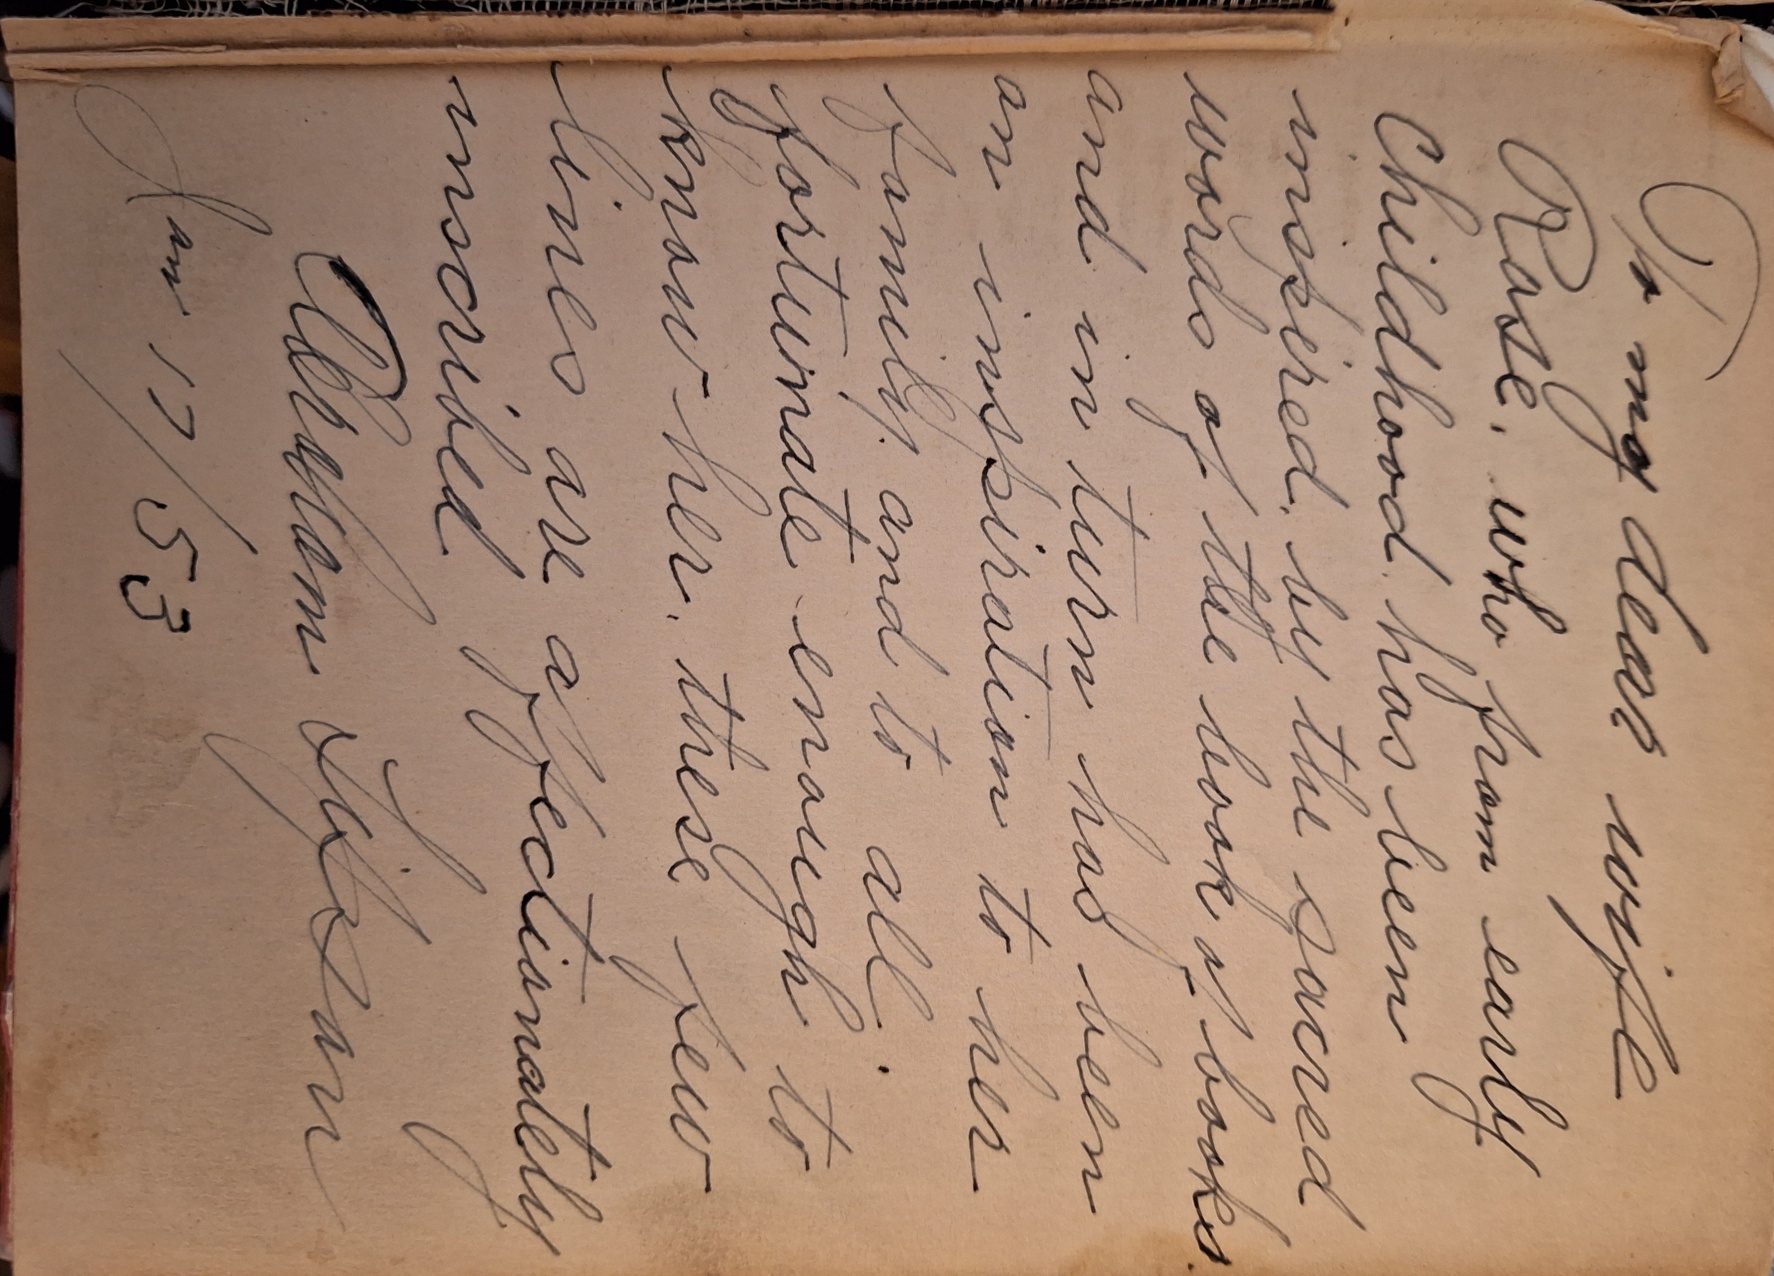 To my dear wife
Rose, who from early
Childhood has been
inspired by the sacred
words of the book of books.
and in turn has been
an inspiration to her
family, and to all
fortunate enough to
know her, these few
lines are affectionately
inscribed
Abraham
Jan 17/53